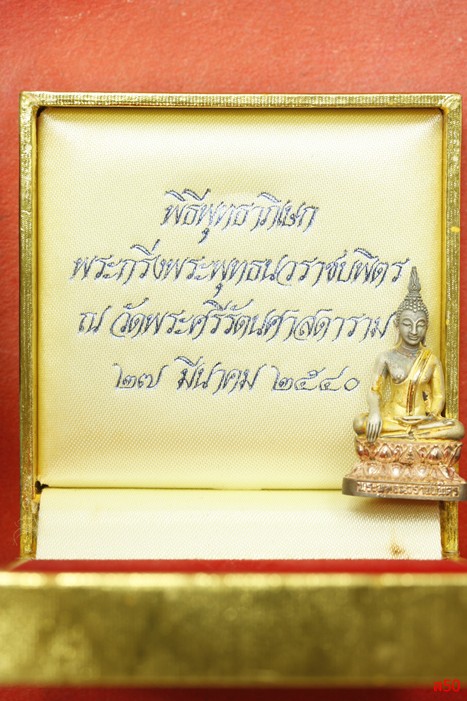 พิธีพุทธาภิเษก
พระกริ่งพระพุทธนวราชบพิตร
ณ วัดพระศรีรัตนศาสดาราม
๒๗ มีนาคม ๒๕๔๐